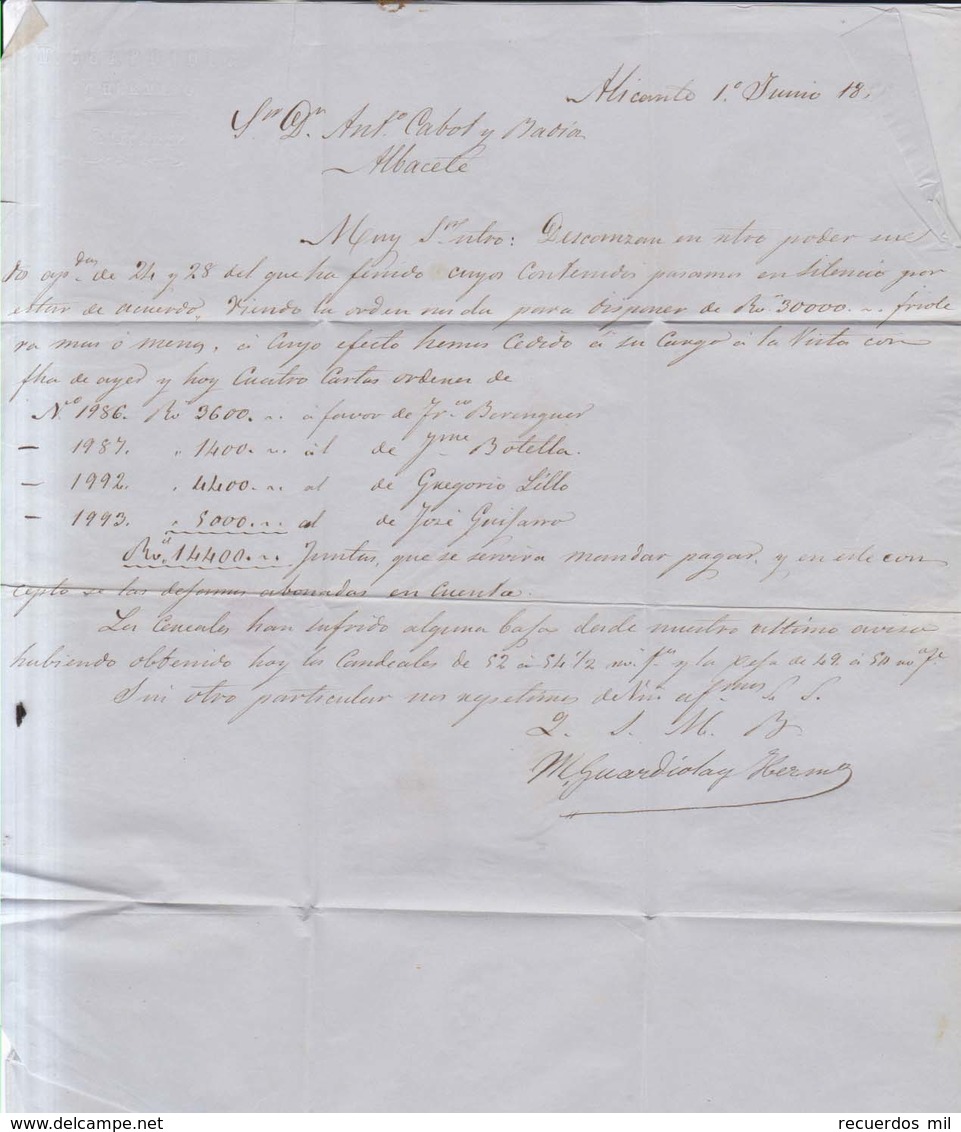 Alicante 1.º Junio 18
Sor Dn. Anto. Cabot y Badia
Albacete
Muy Sor ntro: Descanzan en ntro poder sus
de 24 y 28 del que ha fenido cuyos contenidos pasamos en silencio por
estar de acuerdo, viendo la orden para disponer de Rv. 30000 friole
ra mas ó menos, á cuyo efecto hemos cedido á su cargo á la vista con
fha de ayer y hoy cuatro cartas ordenes de
N.º 1986. Rv 3600. á favor de Fr.co Berenguer
— 1987. " 1400. " al de Jyme Botella.
— 1992. " 4400. " al de Gregorio Lillo
— 1993. " 5000. " al de José Guijarro
Rv. 14400. Juntas, que se servira mandar pagar, y en este con
cepto se las dejamos abonadas en cuenta.
Los cereales han sufrido alguna baja desde nuestro ultimo aviso
habiendo obtenido hoy los candeales de 52 á 54 1/2 y la de 49 á 50
Sin otro particular nos repetimos de Vm. afmos S. S.
Q. S. M. B
M. Guardiola y Herm
recuerdos mil